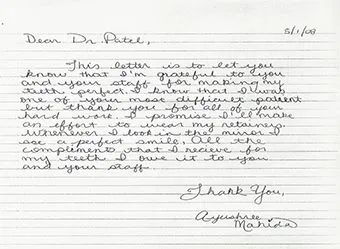 5/1/08
Dear Dr. Patel,
This letter is to let you
know that I'm grateful to you
and your staff for making my
teeth perfect. I know that I was
one of your most difficult patient
but thank you for all of your
hard work. I promise I'll make
an effort to wear my retainers.
Whenever I look in the mirror I
see a perfect smile. All the
complements that I recieve for
my teeth I owe it to you
and your staff.
Thank You,
Ayushree
Mahida